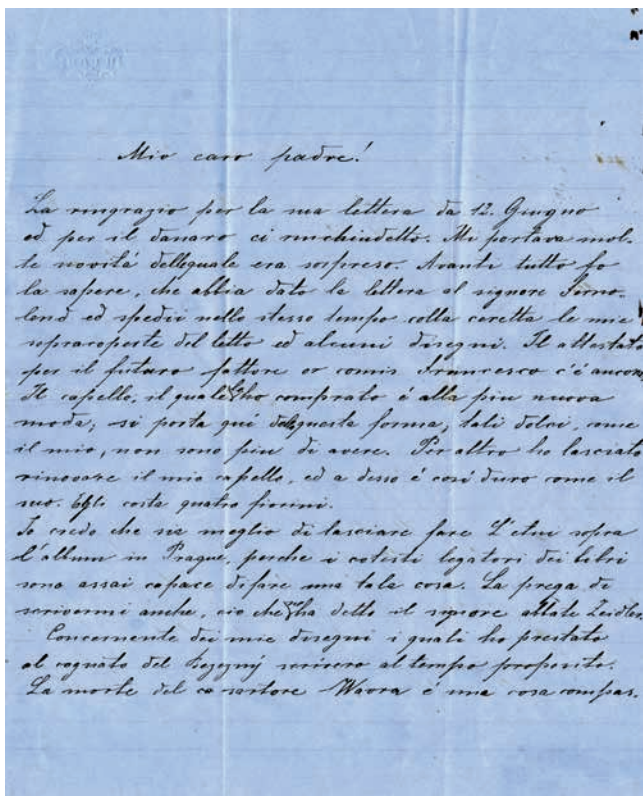 Mio caro padre!
La ringrazio per la sua lettera da 12. Giugno
ed per il danaro ci rinchiudetto. Mi portava mol-
te novitá dellequale era sorpreso. Avanti tutto fo
la sapere, che abbia dato la lettera al signore
lend ed spedii nello stesso tempo colla ceretta le mie
sopracoperte del letto ed alcuni disegni. Il attestato
per il futuro fattore or comis. Francesco c'é ancora
Il capello, il quale ho comprato é alla piu nuova
moda, si porta qui questa forma, tali dolci, come
il mio, non sono piu di avere. Per altro ho lasciato
rinovare il mio capello, ed a desso é cosí duro come il
suo. Egli costa quatro fiorini.
Io credo che sia meglio di lasciare fare l'etui sopra
l'album in Prague, perche i cotesti legatori dei libri
sono assai capace di fare una tale cosa. La prega di
scrivermi anche, cio che ha detto il signore abbate Zeidler.
Concernente dei mie disegni i quali ho prestato
al cognato del scrivero al tempo proposito.
La morte del sartore Wavra é una cosa compas.